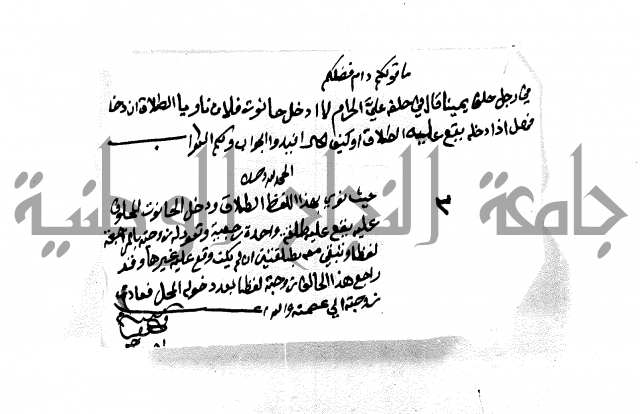 ما قولكم دام فضلكم
في رجل حلف يمينا قال في حلفه علي الحرام لا ادخل حانوت فلان ناويا الطلاق ان دخل
فهل اذا دخله يقع عليه الطلاق او كيف الحال افيدوا الجواب ولكم الثواب
الحمد لله وحده
حيث نوى بهذا اللفظ الطلاق ودخل الحانوت المحلوف
عليه يقع عليه طلقة واحدة رجعية وتعود له زوجته بالمراجعة
لفظا وتبقى معه بطلقتين ان لم يكن وقع عليه غيرها وقد
راجع هذا الحالف زوجته لفظا بعد دخوله المحل فعادت
زوجته الى عصمته والله
٣
جامعة النجاح الوطنية